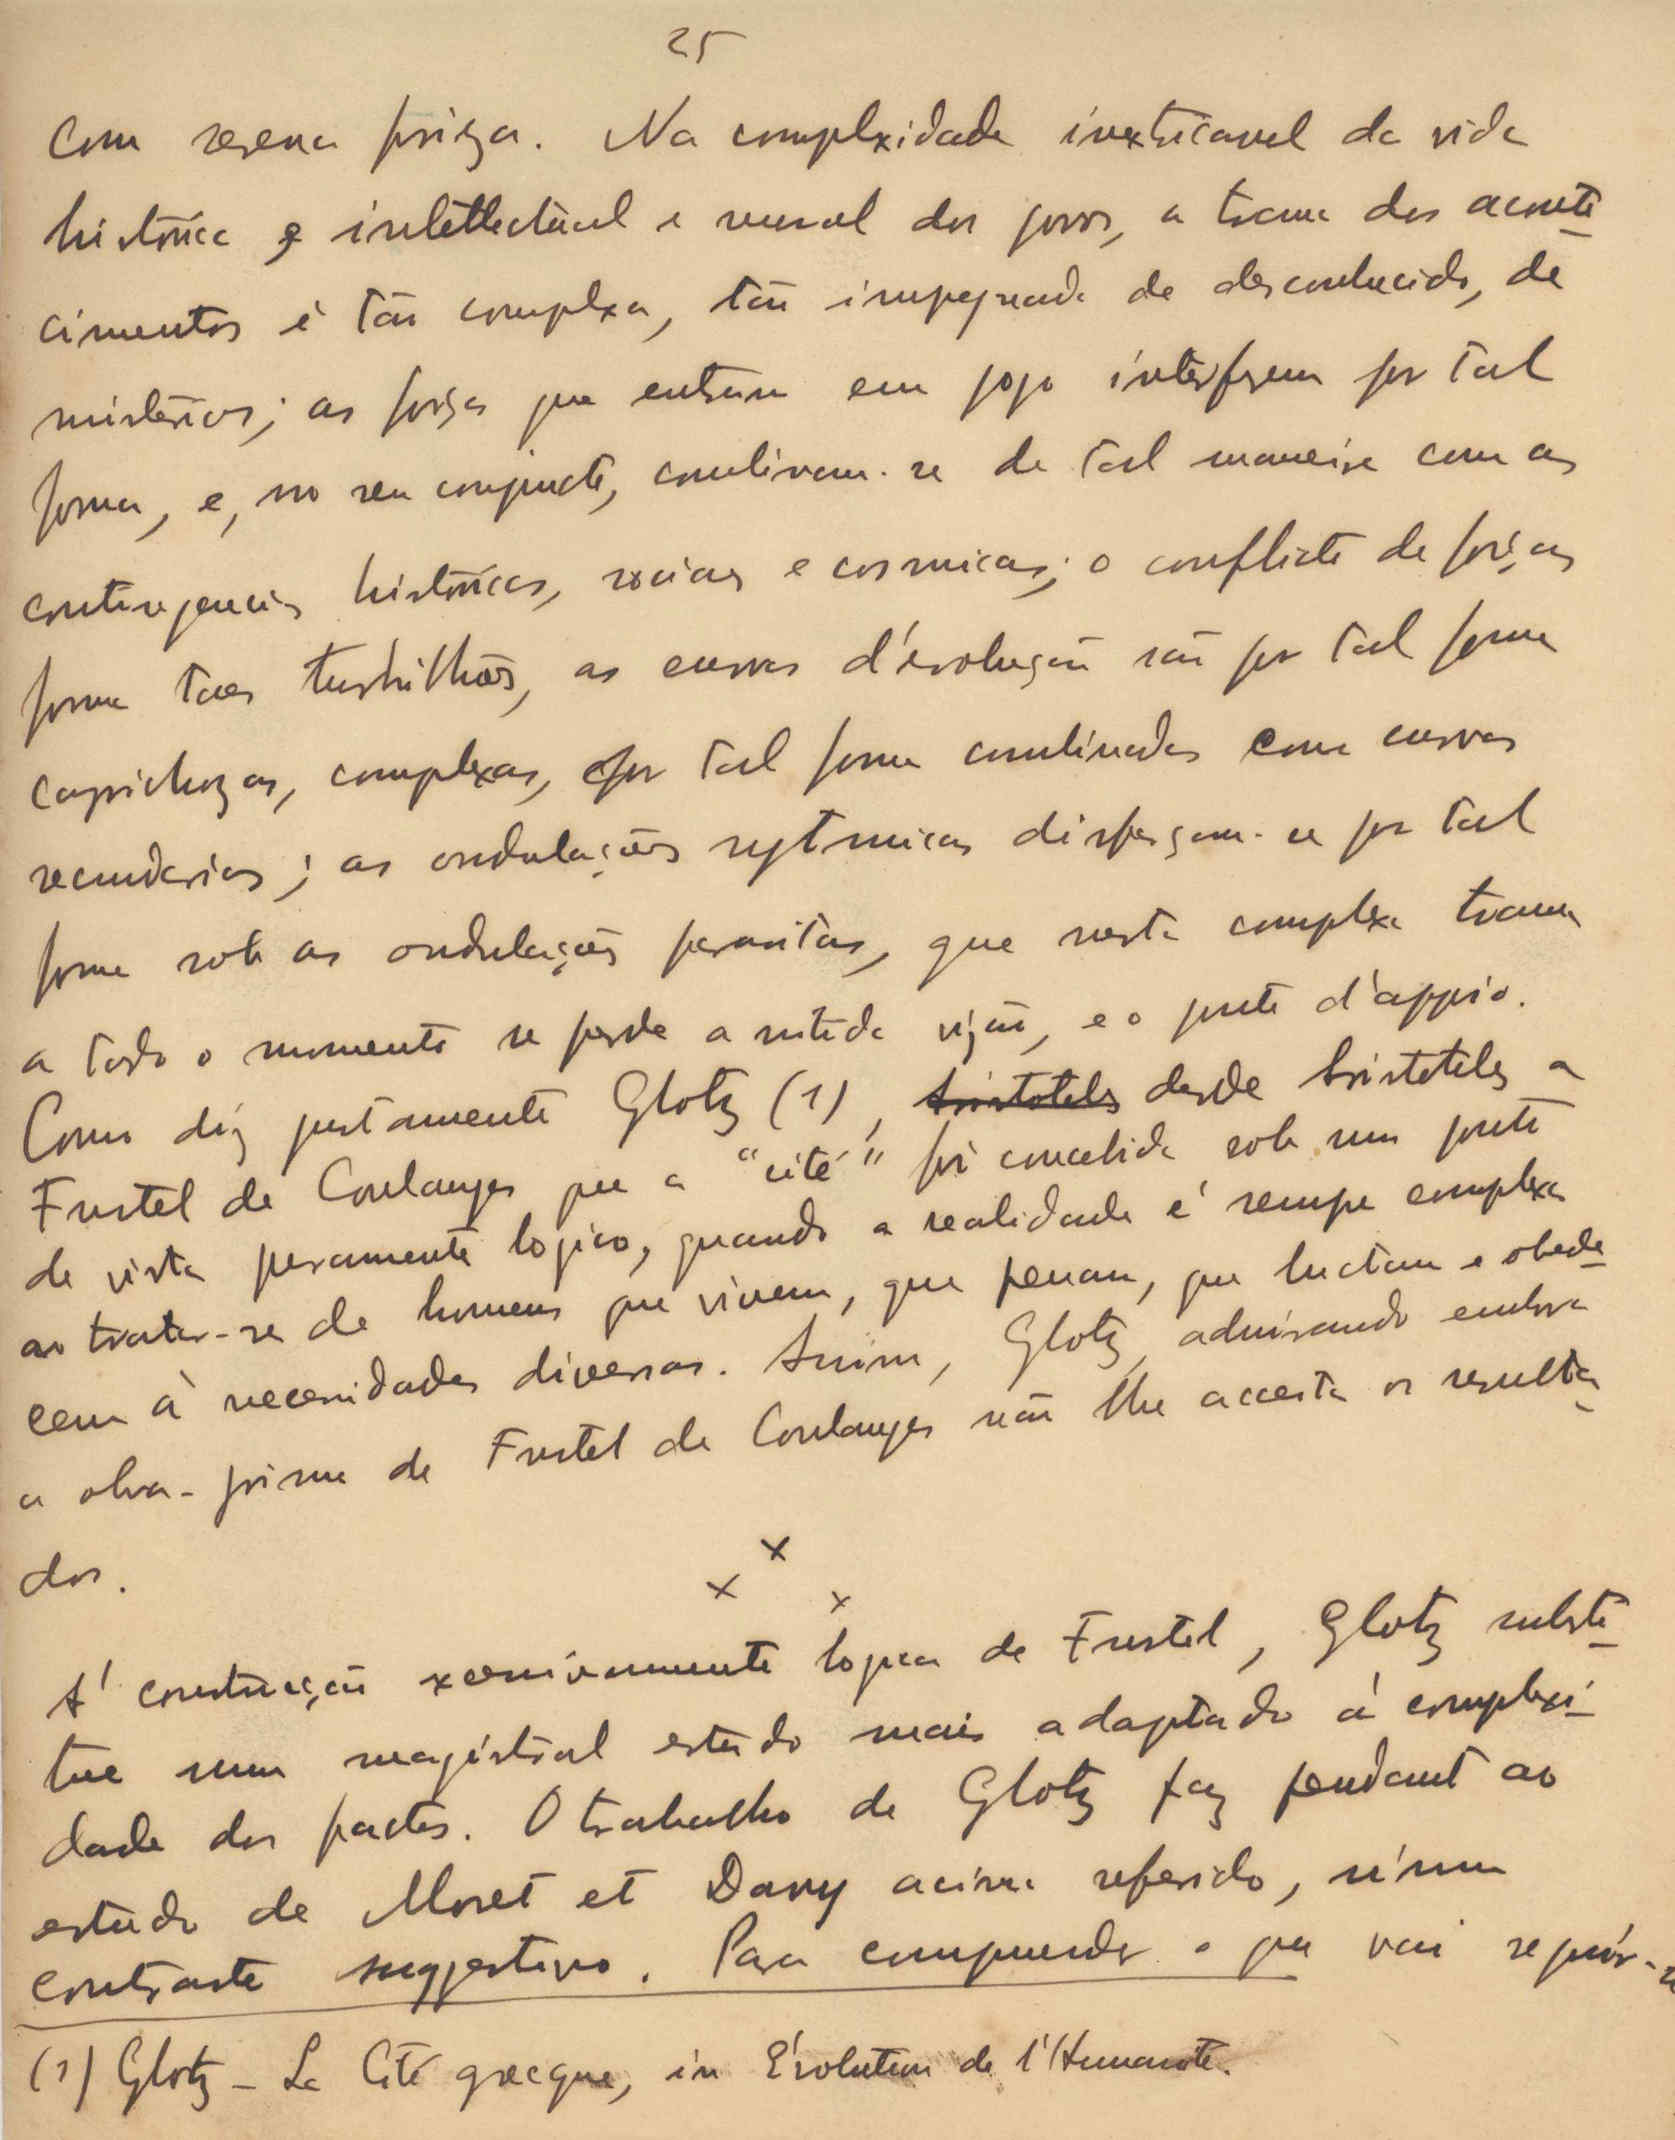 25
com serena frieza. Na complexidade inextricavel da vida
historica e intellectual e moral dos povos, a trama dos aconte
cimentos é tão complexa, tão impregnada de desconhecido, de
misterios; as forças que entram em jogo interferem por tal
forma, e, no seu conjuncto, combinam-se de tal maneira com as
contingencias historicas, sociaes e cosmicas; o conflicto de forças
forma taes turbilhões, as curvas d'evolução são por tal forma
caprichozas, complexas, por tal forma combinadas com curvas
secundarias; as ondulações rytmicas disfarçam-se por tal
forma sob as ondulações parasitas, que nesta complexa trama
a todo o momento se perde a nitida vizão, e o ponto d'appoio.
Como diz justamente Glotz (1), Aristoteles desde Aristoteles a
Fustel de Coulanges que a "cité" foi concebida sob um ponto
de vista puramente logico, quando a realidade é sempre complexa
ao tratar-se de homens que vivem, que penam, que luctam e obede
cem à necessidades diversas. Assim, Glotz, admirando embora
a obra-prima de Fustel de Coulanges não lhe acceita os resulta
dos.
x x x
A' construcção excessivamente logica de Fustel, Glotz substi
tue um magistral estudo mais adaptado á complexi
dade dos factos. O trabalho de Glotz faz pendant ao
estudo de Moret et Davy acima referido, n'um
contraste suggestivo. Para comprender o que vai seguir-se
(1) Glotz - La Cité grecque, in Evolution de l'Humanité.